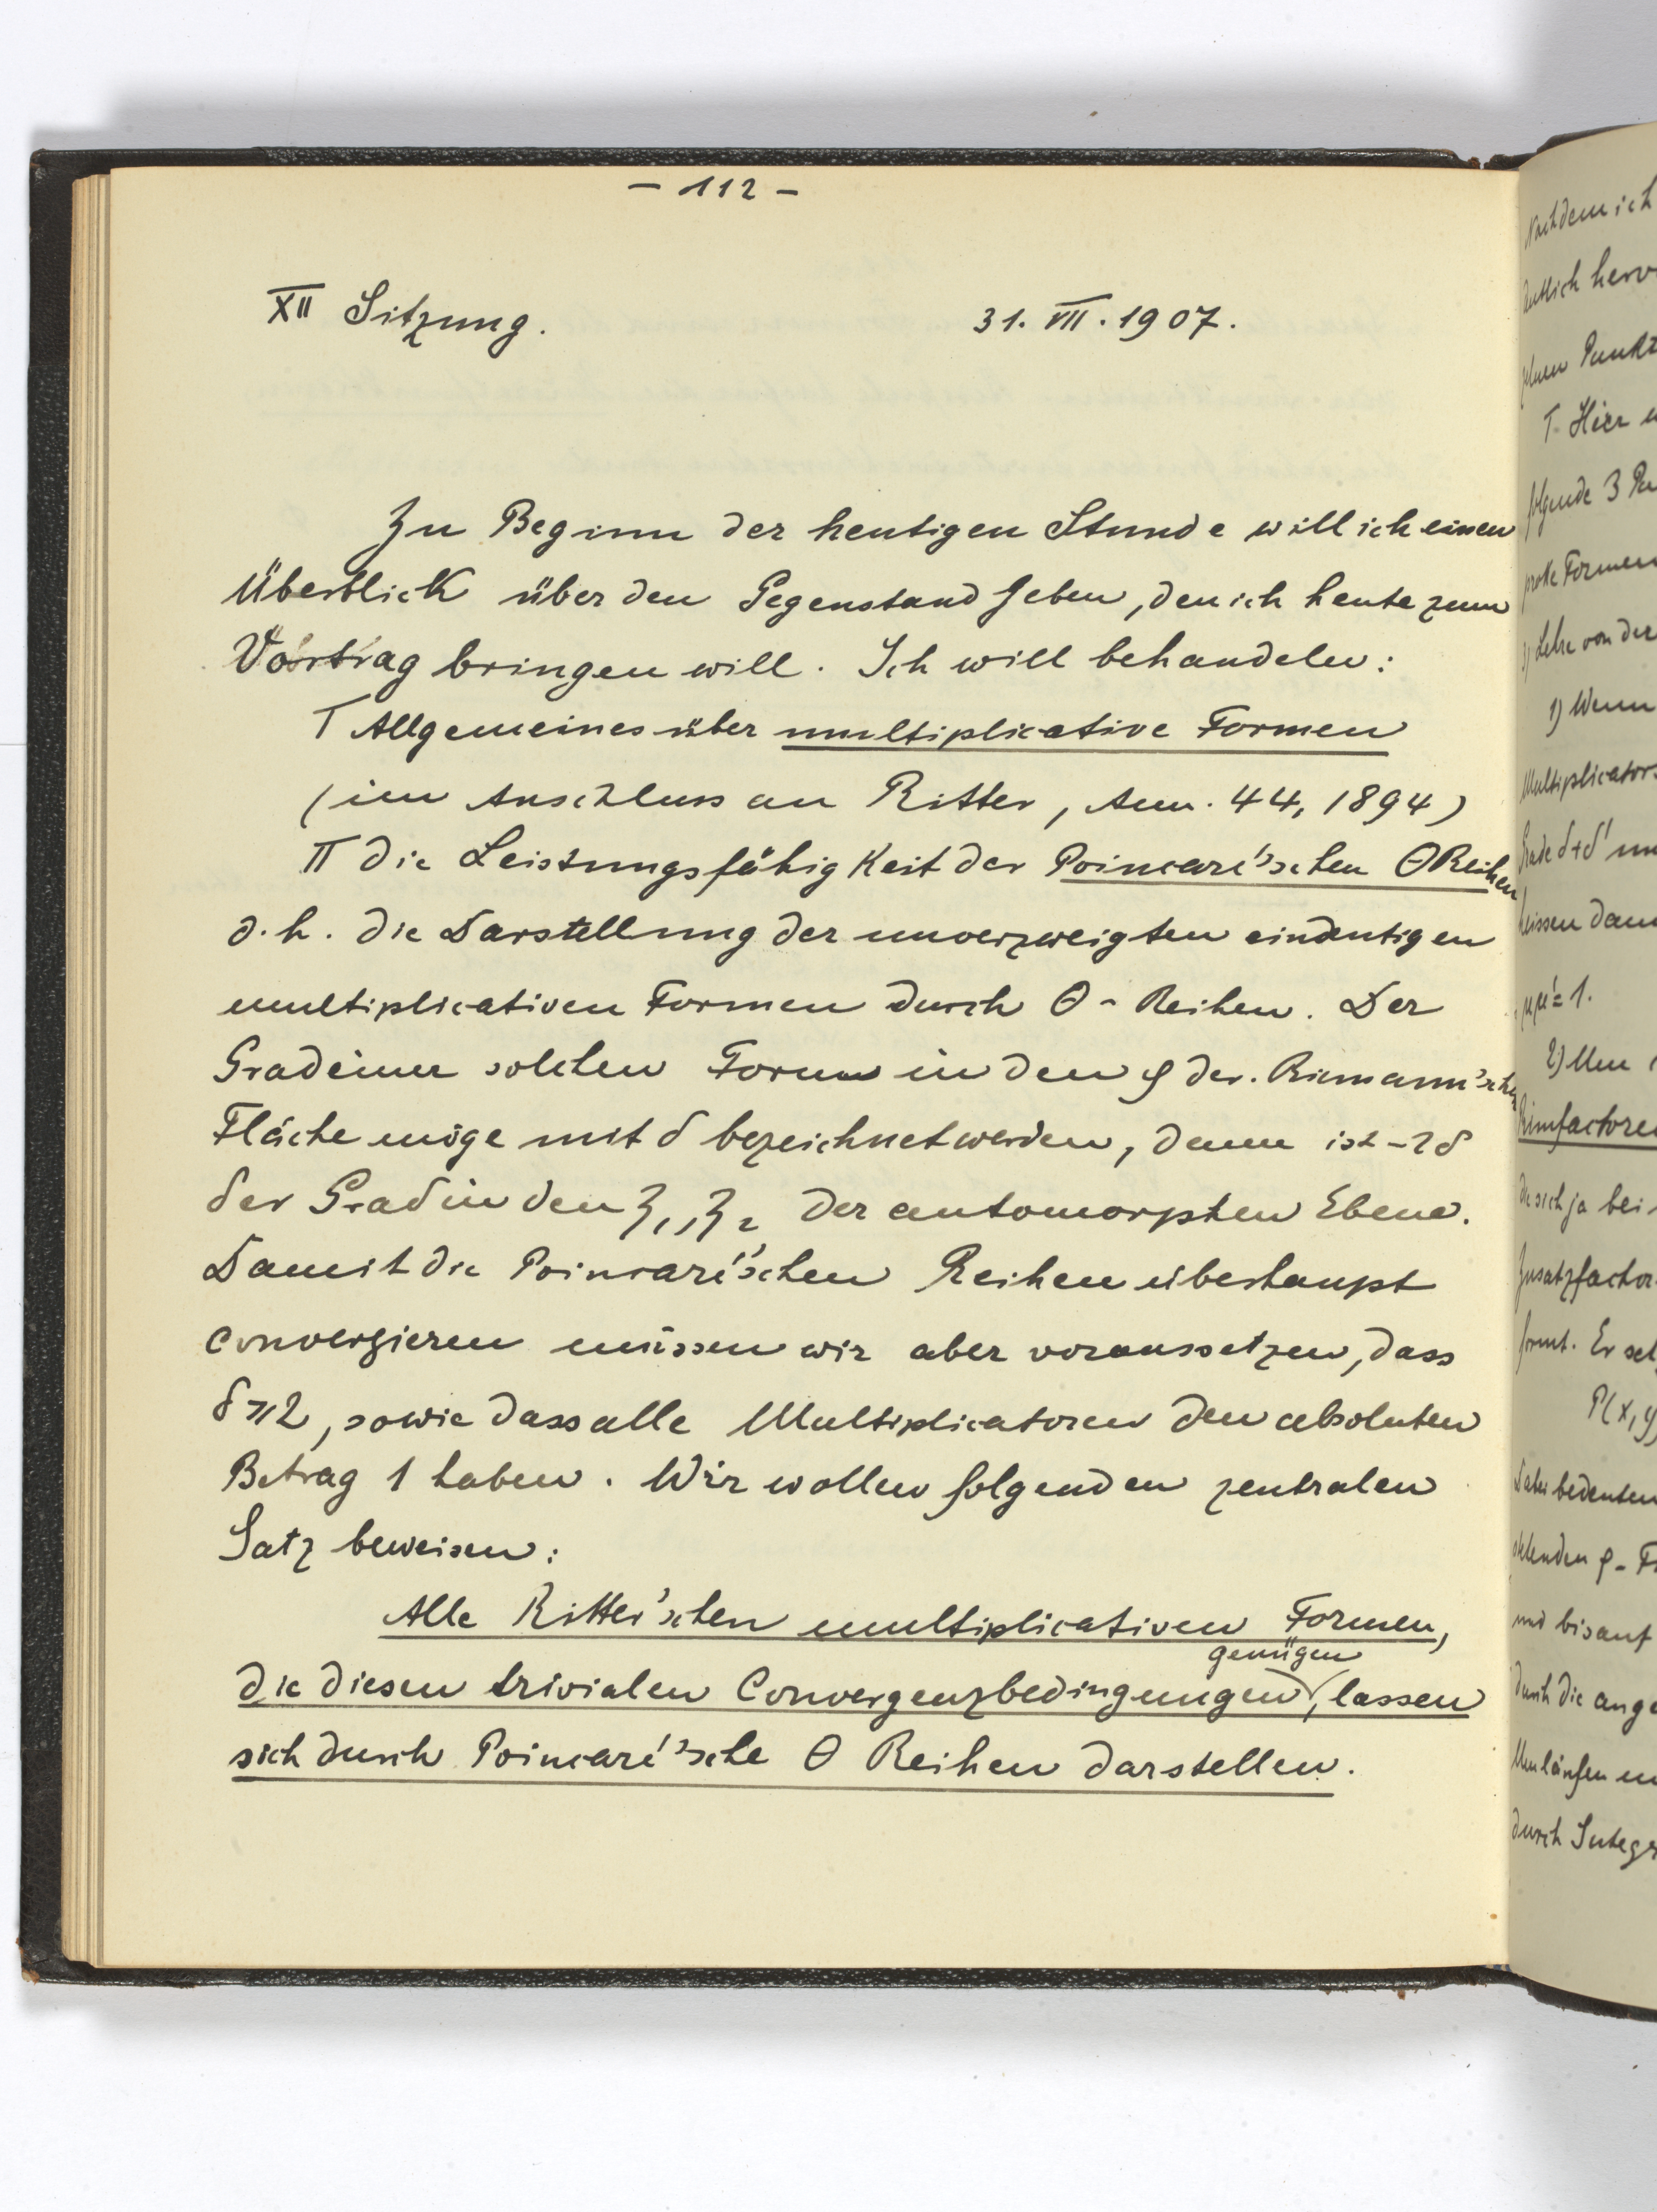 - 112 -
XII Sitzung. 31. VII. 1907.
Zu Beginn der heutigen Stunde will ich einen
Überblick über den Gegenstand geben, den ich heute zum
Vortrag bringen will. Ich will behandeln:
I Allgemeines über multiplicative Formen
(im Anschluss an Ritter, Ann. 44, 1894)
II die Leistungsfähigkeit der Poincaré'schen Θ Reihen
d. h. die Darstellung der unverzweigten eindeutigen
multiplicativen Formen durch Θ - Reihen. Der
Grad einer solchen Form in den φ der Riemann'schen
Fläche möge mit δ bezeichnet werden, dann ist -2δ
der Grad in den ζ₁, ζ₂ der automorphen Ebene.
Damit die Poincaré'schen Reihen überhaupt
convergieren müssen wir aber voraussetzen, dass
δ ≥ 2, sowie dass alle Multiplicatoren den absoluten
Betrag 1 haben. Wir wollen folgenden zentralen
Satz beweisen:
Alle Ritter'schen multiplicativen Formen,
die diesen trivialen Convergenzbedingungen genügen, lassen
sich durch Poincaré'sche Θ Reihen darstellen.
Nachdem ich
Punkt
I. Hier
folgende 3
Formen
Lehre von der
1) Wenn
Multiplicator
Grade δ+δ'
μμ' = 1.
2)
die sich ja bei
Zusatzfactor
P(x, y)
bedeuten
und bis auf
durch die
durch